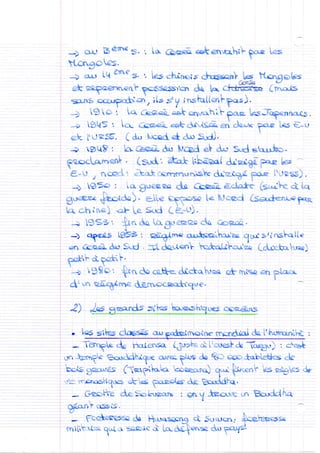 → au 13ème s. : la Corée est envahit par les
Mongoles.
→ au 14ème s. : les chinois chassent les Mongoles
et reprennent possession de la Corée (mais
sans occupation, ils s'y installent pas).
→ 1910 : la Corée est envahit par les Japonnais.
→ 1945 : la Corée est divisée en deux par les E-U
et l'URSS. (du Nord et du Sud).
→ 1948 : la Corée du Nord et du Sud s'auto-
proclament. (Sud : état libéral dirigé par les
E-U, nord : état communiste dirigé par l'URSS).
→ 1950 : la guerre de Corée éclate (suite à la
guerre froide). Elle oppose le Nord (soutenue par
la chine) et le Sud (E-U).
→ 1953 : fin de la guerre de Corée.
→ après 1953 : Régime autoritaire qui s'installe
en Corée du Sud. Il devient totalitaire (dictature)
petit à petit.
→ 1980 : fin de cette dictature et mise en place
d'un régime démocratique.
2) Les grands sites touristiques coréens
• Les sites classés au patrimoine mondial de l'humanité :
- Temple de Haiensa (juste à l'ouest de Taegu) : c'est
un temple Bouddhique avec plus de 80 000 tablettes de
bois gravés (Tripitaka koreana) qui fixent les règles de
vie monastiques et les paroles de Bouddha.
- Grotte de Sokuram : on y trouve un Bouddha
géant assis.
- Forteresse de Hwaseong à Suwon : forteresse
militaire qui a servie à la défense du pays